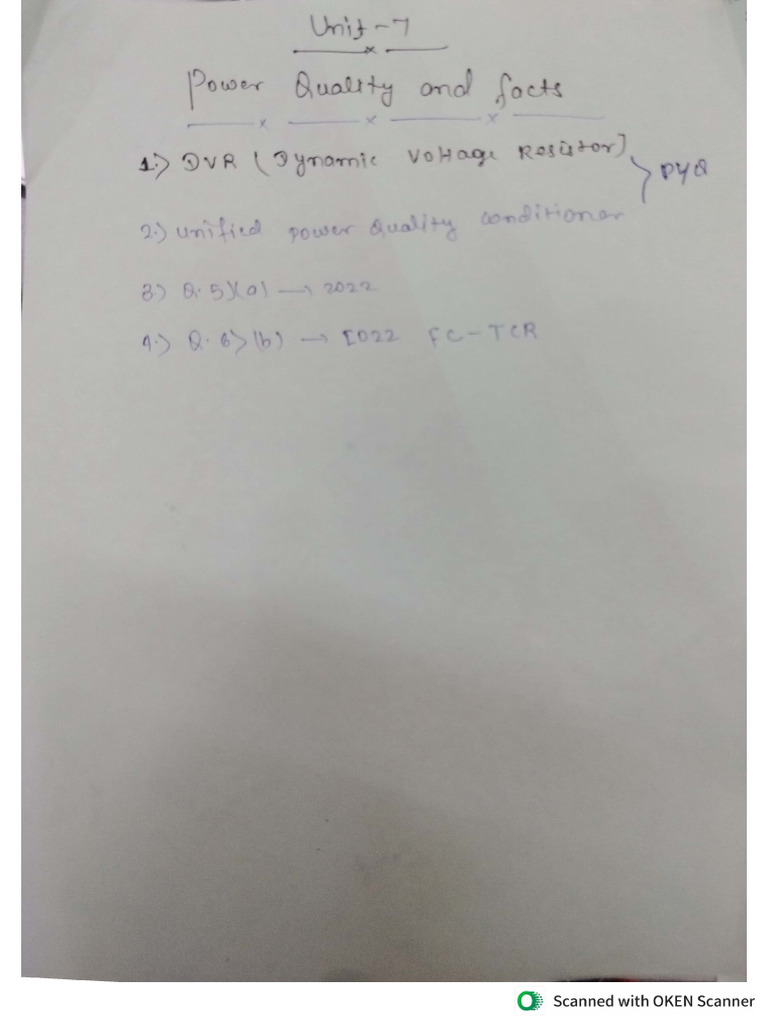 Unit-7
Power Quality and facts
1.) DVR (Dynamic Voltage Resistor)
PYQ
2.) unified power Quality conditioner
3.) Q.5)(a) → 2022
4.) Q.6)(b) → 2022 FC-TCR
Scanned with OKEN Scanner